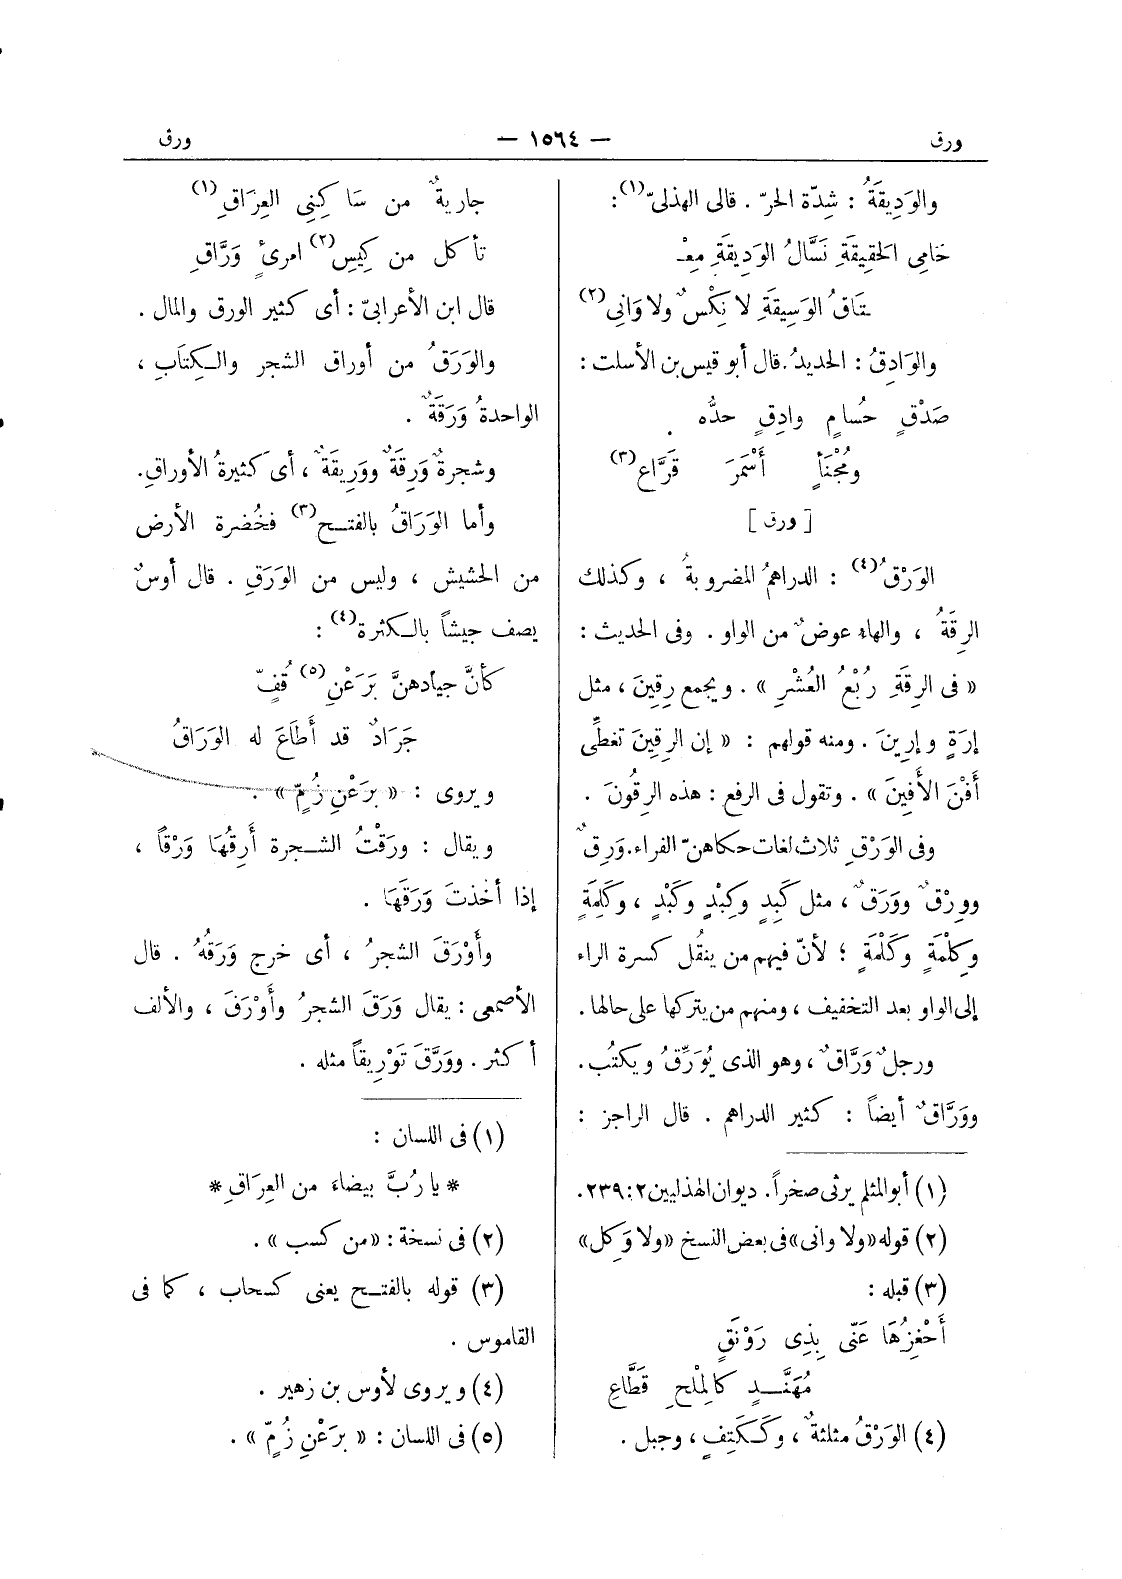 ورق — ١٥٦٤ — ورق
والوَدِيقَةُ : شِدّة الحرّ . قالى الهذلىّ(١) :
حَامِى الحَقِيقَةِ نَسَّالُ الوَدِيقَةِ مِعْـ
ـتَاقُ الوَسِيقَةِ لا نِكْسٌ ولا وَانِى(٢)
والوَادِقُ : الحديدُ . قال أبو قيس بن الأسلت :
صَدْقٍ حُسامٍ وادِقٍ حدُّه .
ومُجْنَأٍ أَسْمَرَ قَرَّاعِ(٣)
[ ورق ]
الوَرْقُ(٤) : الدراهمُ المضروبةُ ، وكذلك
الرِقَةُ ، والهاء عوضٌ من الواو . وفى الحديث :
« فى الرِقَةِ رُبْعُ العُشْرِ » . ويجمع رِقِينَ ، مثل
إرَةٍ وإرِينَ . ومنه قولهم : « إن الرِقِينَ تغطِّى
أَفْنَ الأَفِينَ » . وتقول فى الرفع : هذه الرِقُونَ .
وفى الوَرْقِ ثلاث لغات حكاهنّ الفراء . وَرِقٌ
ووِرْقٌ ووَرَقٌ ، مثل كَبِدٍ وكِبْدٍ وكَبْدٍ ، وكَلِمَةٍ
وكِلْمَةٍ وكَلْمَةٍ ؛ لأنّ فيهم من ينقُل كسرة الراء
إلى الواو بعد التخفيف ، ومنهم من يتركها على حالها .
ورجلٌ وَرَّاقٌ ، وهو الذى يُوَرِّقُ ويكتُب .
ووَرَّاقٌ أيضاً : كثير الدراهم . قال الراجز :
(١) أبو المثلم يرثى صخراً . ديوان الهذليين ٢ : ٢٣٩ .
(٢) قوله « ولا وانى » فى بعض النسخ « ولا وَكل »
(٣) قبله :
أَحْفِزُهَا عَنّى بِذِى رَوْنَقٍ
مُهَنَّـــدٍ كالمِلْحِ قَطَّاعِ
(٤) الوَرْقُ مثلثةٌ ، وكَكَتِفٍ ، وجبل .
جاريةٌ من سَاكِنِى العِرَاقِ(١)
تأكل من كِيسِ(٢) امرئٍ وَرَّاقِ
قال ابن الأعرابىّ : أى كثير الورق والمال .
والوَرَقُ من أوراق الشجر والـكِتَابِ ،
الواحدةُ وَرَقَةٌ .
وشجرةٌ وَرِقَةٌ ووَرِيقَةٌ ، أى كثيرةُ الأوراقِ .
وأما الوَرَاقُ بالفتـــح(٣) فخُضرة الأرض
من الحشيش ، وليس من الوَرَقِ . قال أوسٌ
يصف جيشاً بالـكثرة(٤) :
كأنَّ جيادهنَّ بَرَعْنِ(٥) قُفٍّ
جَرَادٌ قد أَطَاعَ له الوَرَاقُ
ويروى : « بِرَعْنِ زُمٍّ » .
ويقال : ورَقْتُ الشـــجرة أَرِقُهَا وَرْقاً ،
إذا أخذتَ وَرَقَهَا .
وأَوْرَقَ الشجرُ ، أى خرج وَرَقُهُ . قال
الأصمعى : يقال وَرَقَ الشجرُ وأَوْرَقَ ، والألف
أكثر . ووَرَّقَ تَوْرِيقاً مثله .
(١) فى اللسان :
* يا رُبَّ بيضاءَ من العِرَاقِ *
(٢) فى نسخة : « من كسب » .
(٣) قوله بالفتـــح يعنى كسحاب ، كما فى
القاموس .
(٤) ويروى لأوس بن زهير .
(٥) فى اللسان : « بِرَعْنِ زُمٍّ » .